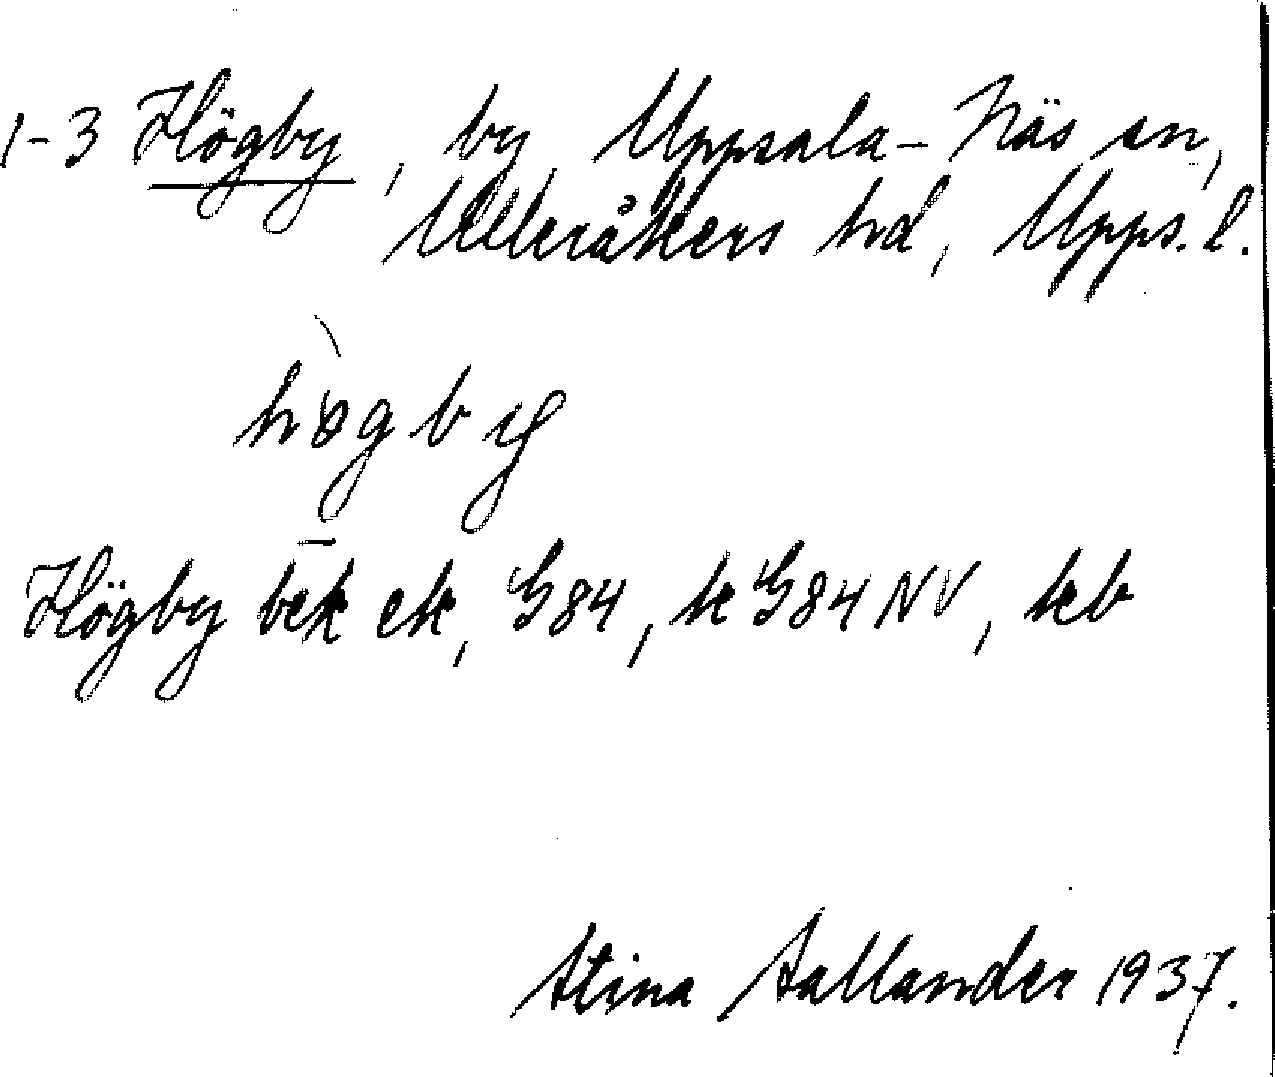 1-3 Högby, by, Uppsala-Näs sn,
Ulleråkers hd, Upps. l.
høgby
Högby bek ek, G84, k G84 NV, kb
Stina Sallander 1937.